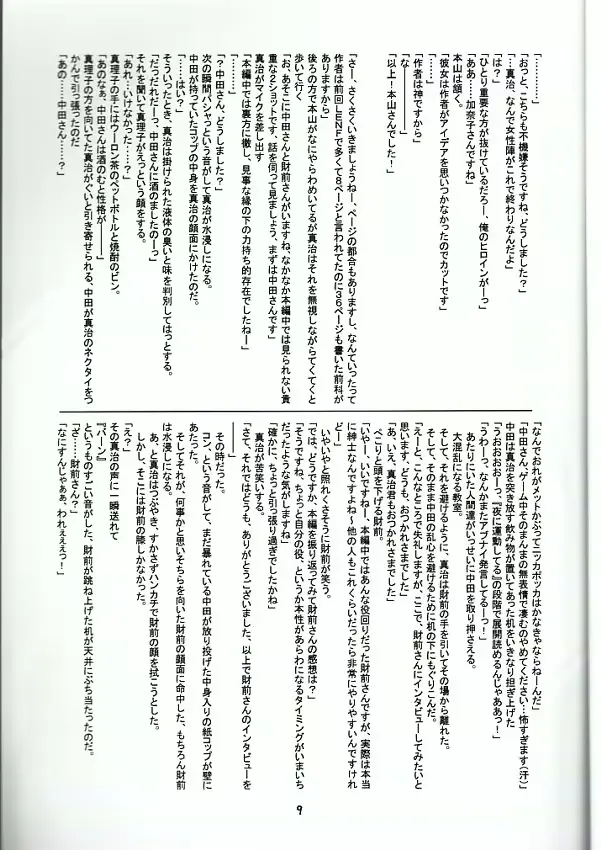 「………」
「おっと、こちらも不機嫌そうですね、どうしました？」
「…真治、なんで女性陣がこれで終わりなんだよ」
「は？」
「ひとり重要な方が抜けているだろー、俺のヒロインがーっ」
「ああ……加奈子さんですね」
本山は頷く。
「彼女は作者がアイデアを思いつかなかったのでカットです」
「作者は神ですから」
「な―――」
「以上！本山さんでした！」
「さー、さくさくいきましょうねー、ページの都合もありますし、なんていったって
作者は前回ＬＥＮＦで多くて８ページと言われてたのに３６ページも書いた前科が
ありますから」
後ろの方で本山がなにやらわめいてるが真治はそれを無視しながらてくてくと
歩いて行く
「お、あそこに中田さんと財前さんがいますね、なかなか本編中では見られない貴
重な２ショットです、話を伺って見ましょう、まずは中田さんです」
真治がマイクを差し出す
「本編中では裏方に徹し、見事な縁の下の力持ち的存在でしたねー」
「………」
「？中田さん、どうしました？」
次の瞬間、パシャっという音がして真治が水浸しになる。
中田が持っていたコップの中身を真治の顔面にかけたのだ。
「……はい？」
そういったとき、真治は掛けられた液体の臭いと味を判別してはっとする。
「だっだれだーっ、中田さんに酒のましたのーっ」
それを聞いて真理子がえっという顔をする。
「あれ…いけなかった……？」
真理子の手にはウーロン茶のペットボトルと焼酎のビン。
「あのなぁ、中田さんは酒のむと性格が―――」
真理子の方を向いてた真治がぐいと引き寄せられる、中田が真治のネクタイをつ
かんで引っ張ったのだ
「あの……中田さん……？」
「なんでおれがメットかぶってニッカボッカはかなきゃならねーんだ」
「中田さん、ゲーム中そのまんまの無表情で凄むのやめてください…怖すぎます（汗）」
中田は真治を突き放す飲み物が置いてあった机をいきなり担ぎ上げた
「うおおおおーっ、『夜に運動してる』の段階で展開読めるんじゃああっ！」
「うわーっ、なんかまたアブナイ発言してるーっ！」
あたりにいた人間達がいっせいに中田を取り押さえる。
大混乱になる教室。
そして、それを避けるように、真治は財前の手を引いてその場から離れた。
そして、そのまま中田の乱心を避けるために机の下にもぐりこんだ。
「えーと、こんなところで失礼しますが、ここで、財前さんにインタビューしてみたいと
思います、どうも、おつかれさまでした」
「あ、いえ、真治君もおつかれさまでした」
ぺこりと頭を下げる財前。
「いやー、いいですねー、本編中ではあんな役回りだった財前さんですが、実際は本当
に紳士なんですよね～他の人もこれくらいだったら非常にやりやすいんですけれ
どー」
いやいやと照れくさそうに財前が笑う。
「では、どうですか、本編を振り返ってみて財前さんの感想は？」
「そうですね、ちょっと自分の役、というか本性があらわになるタイミングがいまいち
だったような気がしますね」
「確かに、ちょっと引っ張り過ぎでしたかね」
真治が苦笑いする。
「さて、それではどうも、ありがとうございました、以上で財前さんのインタビューを
―――」
その時だった。
コン、という音がして、まだ暴れている中田が放り投げた中身入りの紙コップが壁に
あたった。
そしてそれが、何事かと思いそちらを向いた財前の顔面に命中した、もちろん財前
は水浸しになる。
あ、と真治はつぶやき、すかさずハンカチで財前の顔を拭こうとした。
しかし、そこには財前の膝しかなかった。
「え？」
その真治の声に一瞬送れて
『バーン』
というものすごい音がした、財前が跳ね上げた机が天井にぶち当たったのだ。
「ざ……財前さん？」
「なにすんじゃぁぁ、われぇぇぇっ！」
9